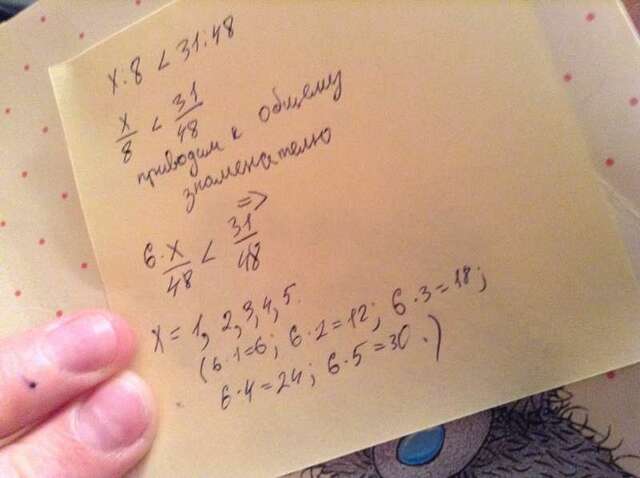 x:8 < 31:48
x/8 < 31/48
приводим к общему
знаменателю
=>
6·x/48 < 31/48
x = 1, 2, 3, 4, 5.
(6·1=6; 6·2=12; 6·3=18;
6·4=24; 6·5=30.)